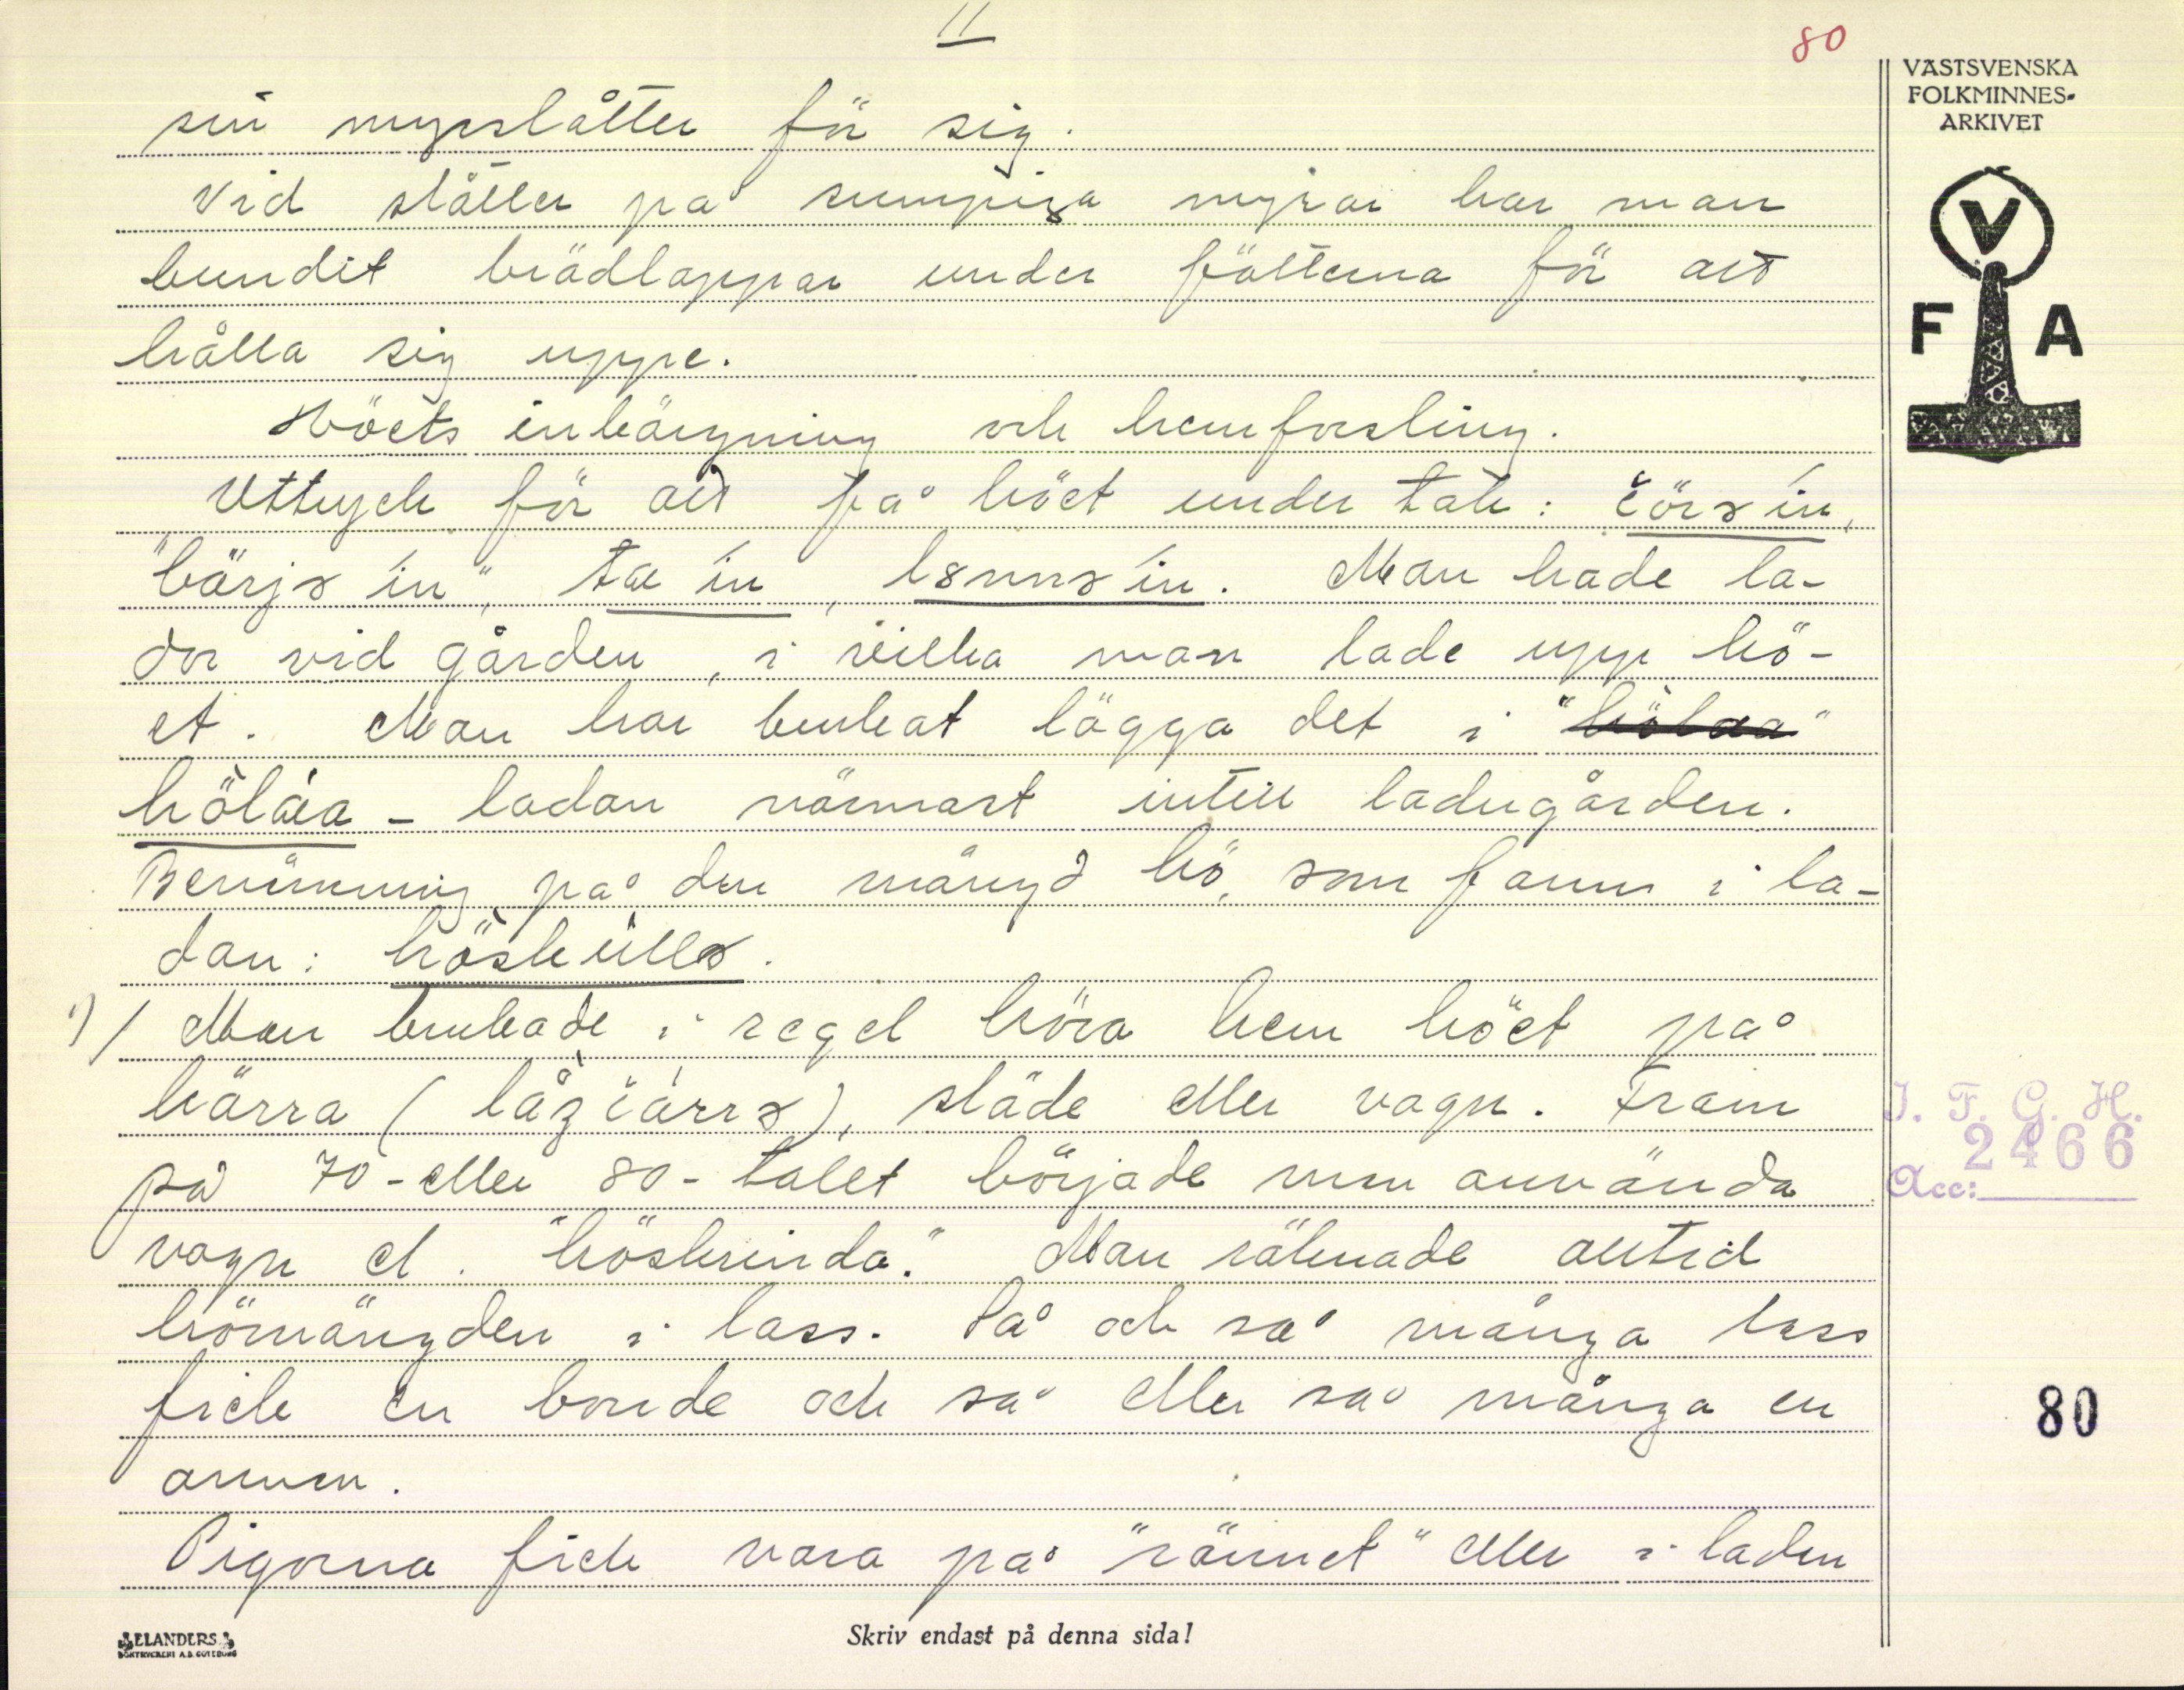 11
80
VÄSTSVENSKA
FOLKMINNES-
ARKIVET
V
F A
sin myrslåtter för sig.
Vid slåtter på sumpiga myrar har man
bundit brädlappar under fötterna för att
hålla sig uppe.
Höets inbärgning och hemforsling.
Uttryck för att få höet under tak: čörɤ in,
"bärjɤ in", ta in, .
Man hade la-
dor vid gården, i vilka man lade upp hö-
et. Man har brukat lägga det i "hölaa"
höláa - ladan närmast intill ladugården.
Benämning på den mängd hö, som fanns i la-
dan: höskulle.
1) / Man brukade i regel köra hem höet på
kärra (), släde eller vagn. Fram
på 70- eller 80-talet började man använda
vagn el. "höskrinda." Man räknade alltid
hömängden i lass. Så och så många lass
fick en bonde och så eller så många en
annan.
Pigorna fick vara på "rännet" eller i ladan
I. F. G. H.
2466
Acc:
80
ELANDERS
BOKTRYCKERI A.B. GÖTEBORG
Skriv endast på denna sida!